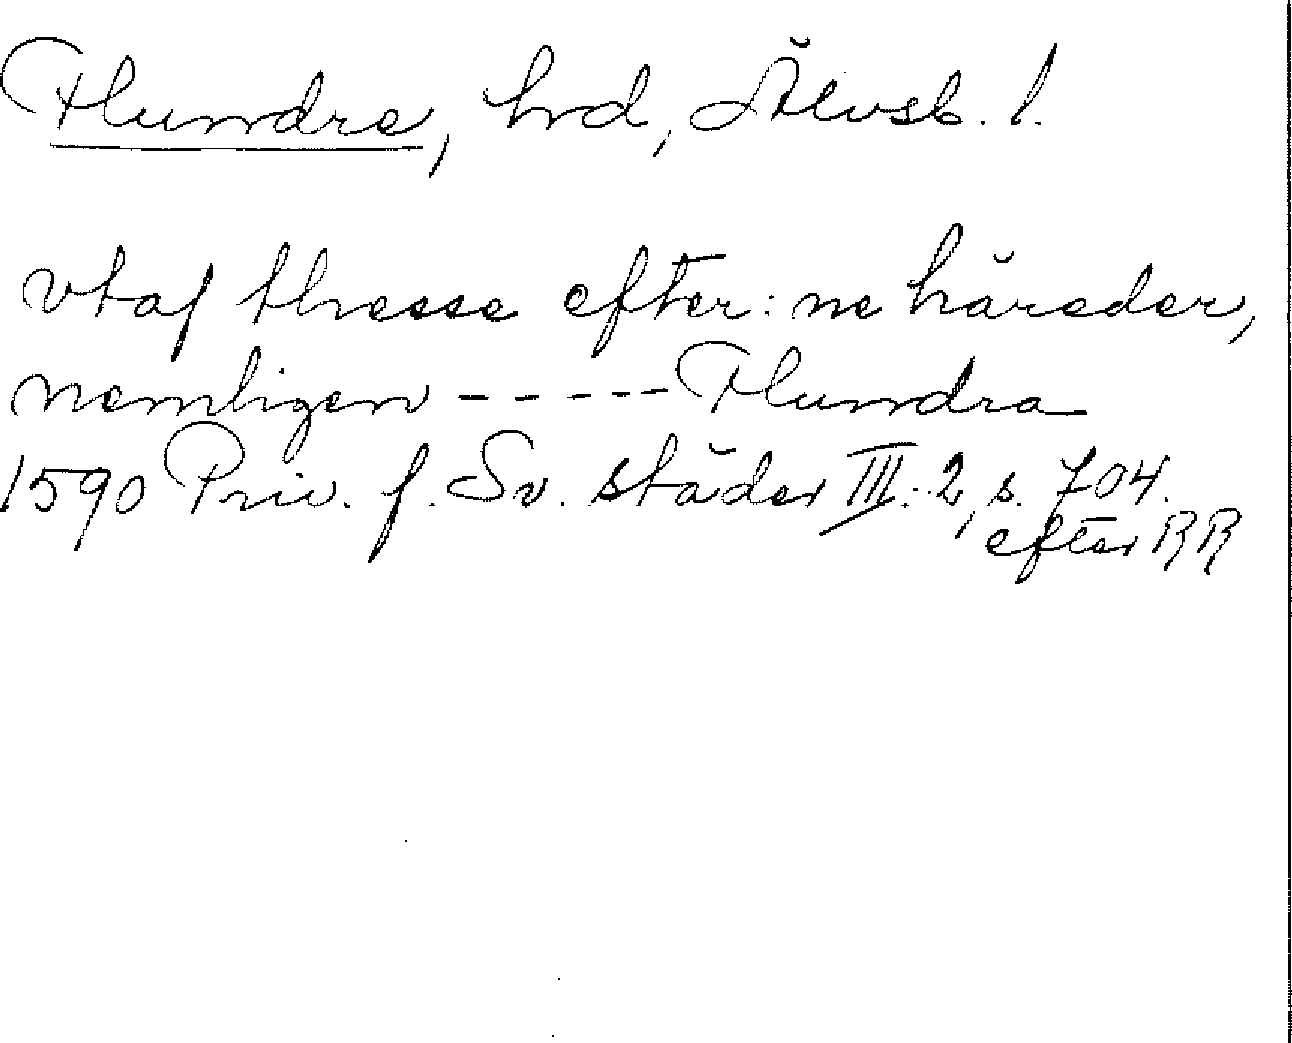 Flundre, hrd, Älvsb. l.
vtaf thesse efter:ne häreder,
nemligen ----- Flundra
1590 Priv. f. Sv. städer III:2, s. 704.
efter RR